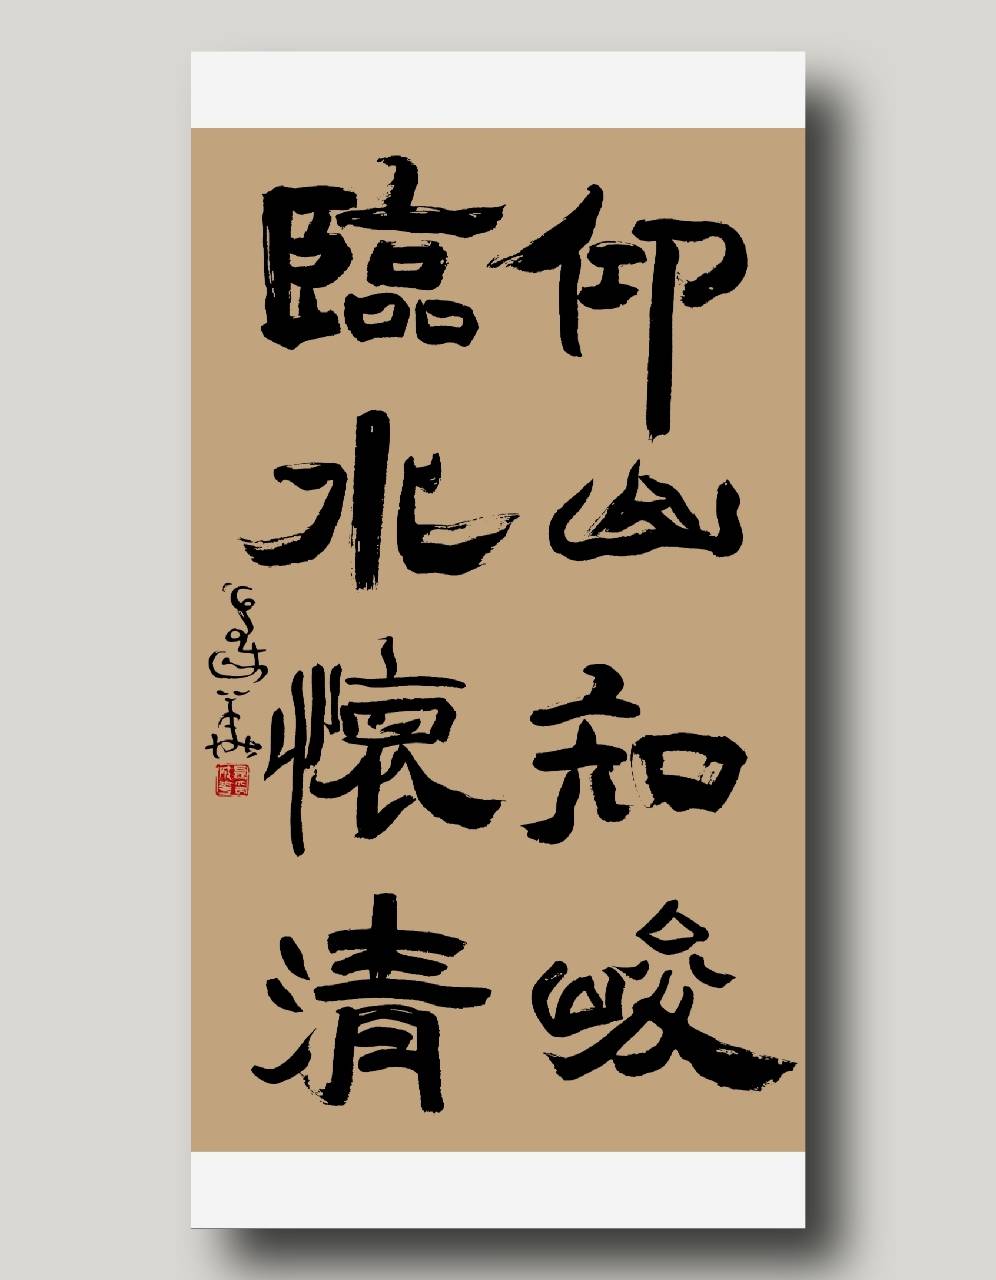 仰山知峻
臨水懷清